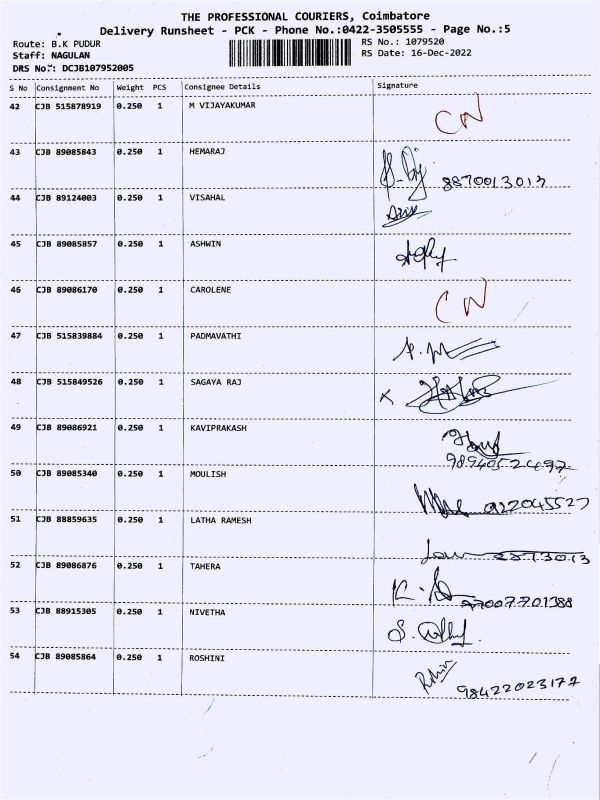 THE PROFESSIONAL COURIERS, Coimbatore
Delivery Runsheet - PCK - Phone No.:0422-3505555 - Page No.:5
Route: B.K PUDUR RS No.: 1079520
Staff: NAGULAN RS Date: 16-Dec-2022
DRS No.: DCJB107952005
S No Consignment No Weight PCS Consignee Details Signature
42 CJB 515878919 0.250 1 M VIJAYAKUMAR CN
43 CJB 89085843 0.250 1 HEMARAJ 8870013013
44 CJB 89124003 0.250 1 VISAHAL
45 CJB 89085857 0.250 1 ASHWIN
46 CJB 89086170 0.250 1 CAROLENE CN
47 CJB 515839884 0.250 1 PADMAVATHI
48 CJB 515849526 0.250 1 SAGAYA RAJ
49 CJB 89086921 0.250 1 KAVIPRAKASH
50 CJB 89085340 0.250 1 MOULISH
51 CJB 88859635 0.250 1 LATHA RAMESH
52 CJB 89086876 0.250 1 TAHERA
53 CJB 88915305 0.250 1 NIVETHA
54 CJB 89085864 0.250 1 ROSHINI